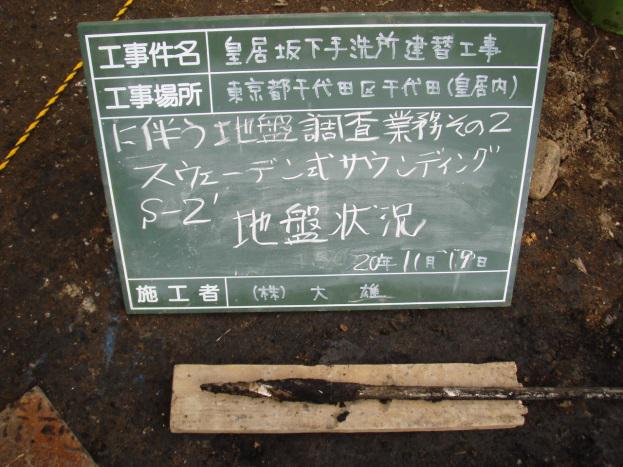 工事件名 皇居坂下手洗所建替工事
工事場所 東京都千代田区千代田(皇居内)
に伴う地盤調査業務その2
スウェーデン式サウンディング
S-2'
地盤状況
20年11月19日
施工者 (株)大雄